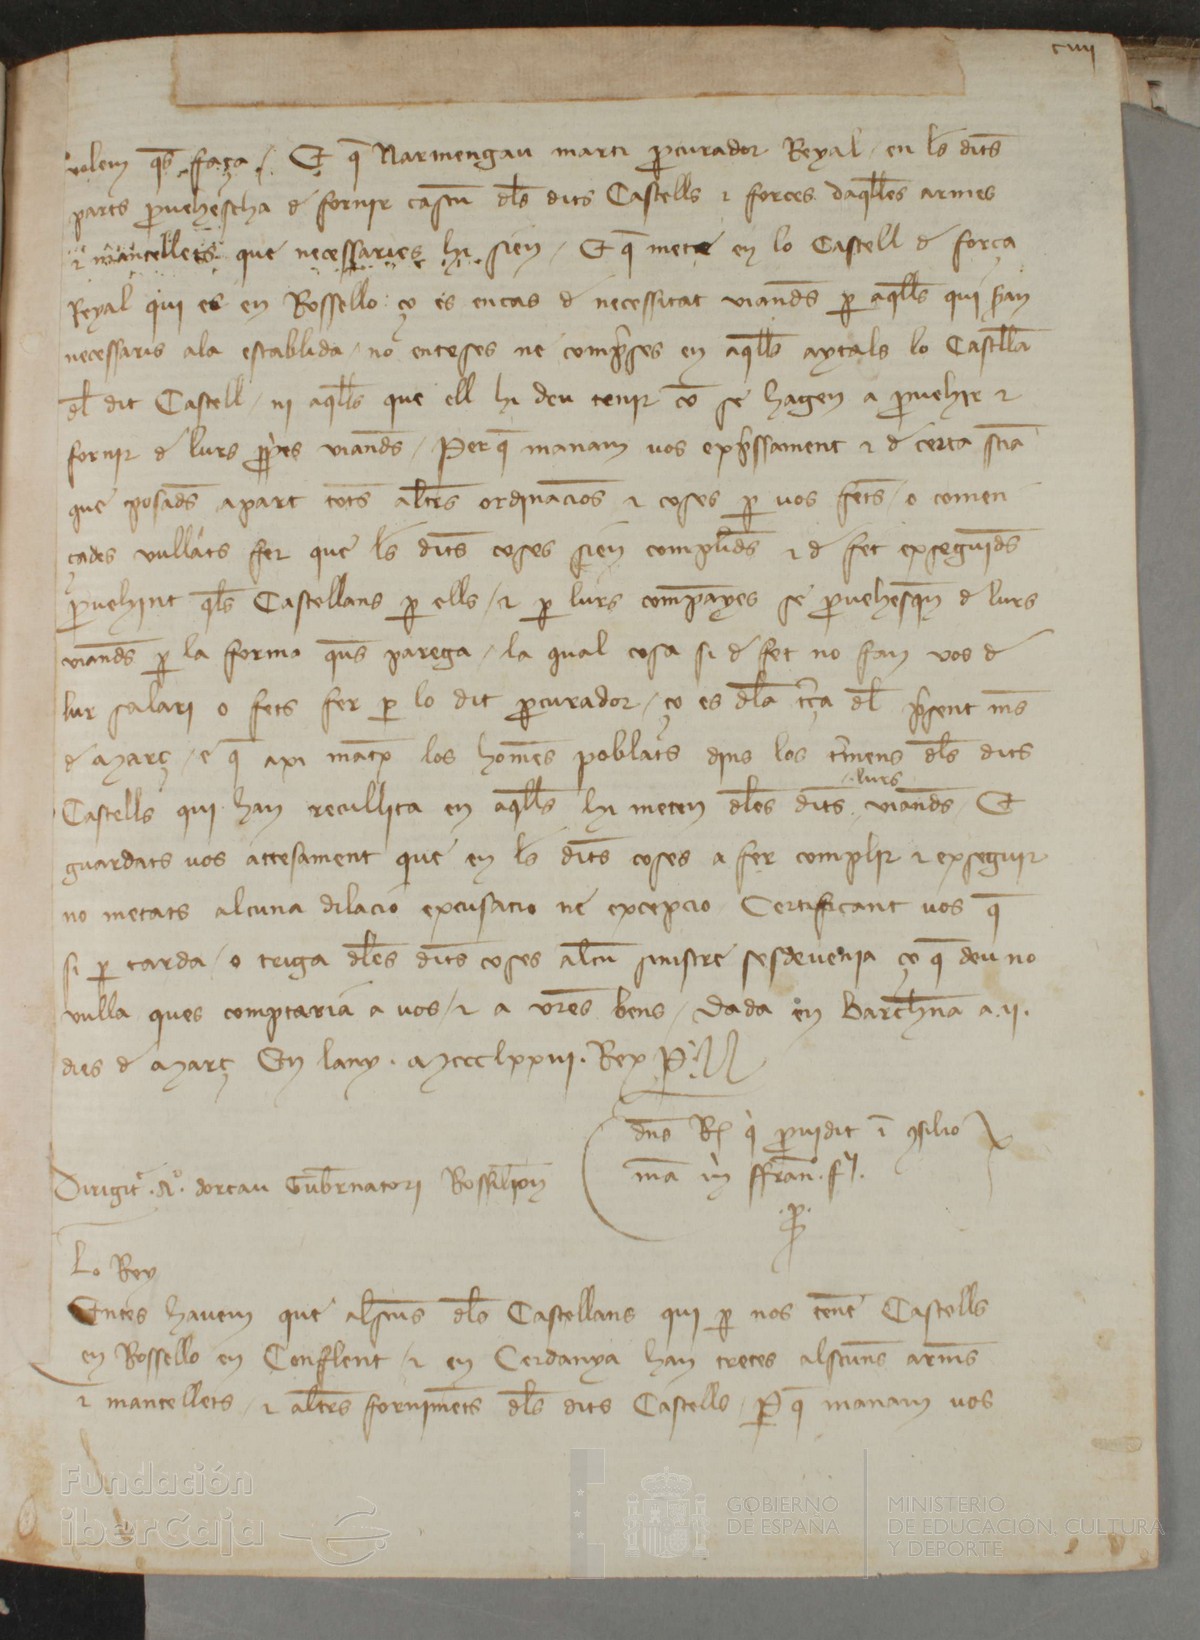 cviij
volem q̄s faça / Et q̄ Narmengau marti ꝓcurador Reyal / en l̄s dits
parts ꝓuehescha d fornir cascū dl̄s dits Castells ⁊ forces daq̄lles armes
⁊ mancellets que necessaries hi sien / Et q̄ meta en lo Castell d força
Reyal qui es en Rossello ço es encas d necessitat viandes ꝑ aq̄lls qui seran
necessaris ala establida / no enteses ne compreses en aq̄lls aytals lo Castellā
dl̄ dit Castell / ni aq̄lls que ell hi deu tenir cō se hagen a ꝓuehir ⁊
fornir d lurs ꝓpies viands / Perq̄ manam vos expressament ⁊ d certa sciā
que posads apart totes altres ordinacios ⁊ coses ꝑ vos fetes / o comen
çades vullats fer que l̄s dits coses sien complids ⁊ d fet exseguids
ꝓuehint q̄ls Castellans ꝑ ells / ⁊ ꝑ lurs companyes se ꝓuehesquen d lurs
viands ꝑ la forma qūs parega / la qual cosa si d fet no fan vos d
lur salari o fets fer per lo dit ꝓcurador / ço es dl̄a terça dl̄ present mes
d março / e q̄ axi matex los homēs poblats dins los tērmens dl̄s dits
Castells qui han recullita en aq̄lls hi meten dl̄es dits lurs viands / Et
guardats vos attesament que en l̄s dits coses a fer complir ⁊ exseguir
no metats alcuna dilacio excusatio ne excepcio / Certificant vos q̄
si ꝑ tarda / o triga dl̄es dits coses alcū sinistre sesdevenia ço q̄ deu no
vulla ques comptaria a vos / ⁊ a vr̄es bens / Dada en Barchn̄a a .ij.
dies d março En lany . Mccclxxvi . Rex P.
dn̄s Rex q̇ ꝓuidit ī ꝯsilio
Dirigit̄ . A° . dortau Gub̄rnatori Rossilion̄
ma m ffran. . ꝓ .
Lo Rey
Entes havem que alscuns dl̄s Castellans qui ꝑ nos tenē Castells
en Rossello en Conflent / ⁊ en Cerdanya han tretes alscunes armes
⁊ mantellets / ⁊ altres fornimēts dl̄s dits Castells / ꝑq̄ manam vos
Fundación
iberCaja
GOBIERNO
DE ESPAÑA
MINISTERIO
DE EDUCACIÓN, CULTURA
Y DEPORTE